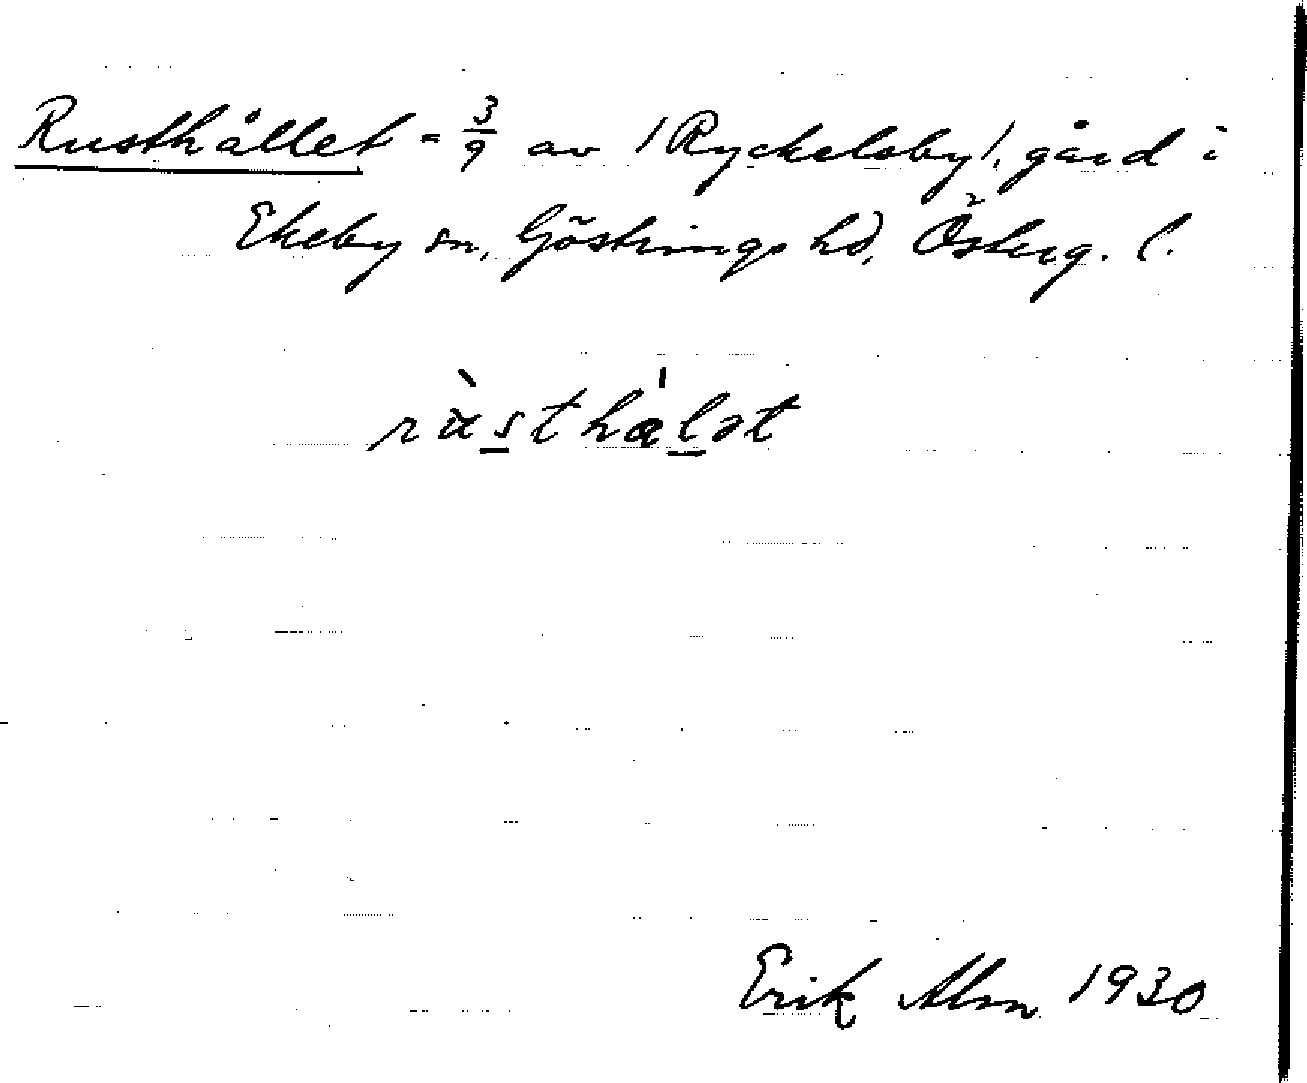 Rusthållet = 3/9 av /Ryckelsby/, gård i
Ekeby sn, Göstrings hd, Österg. l.
rùsthålət
Erik Alm 1930